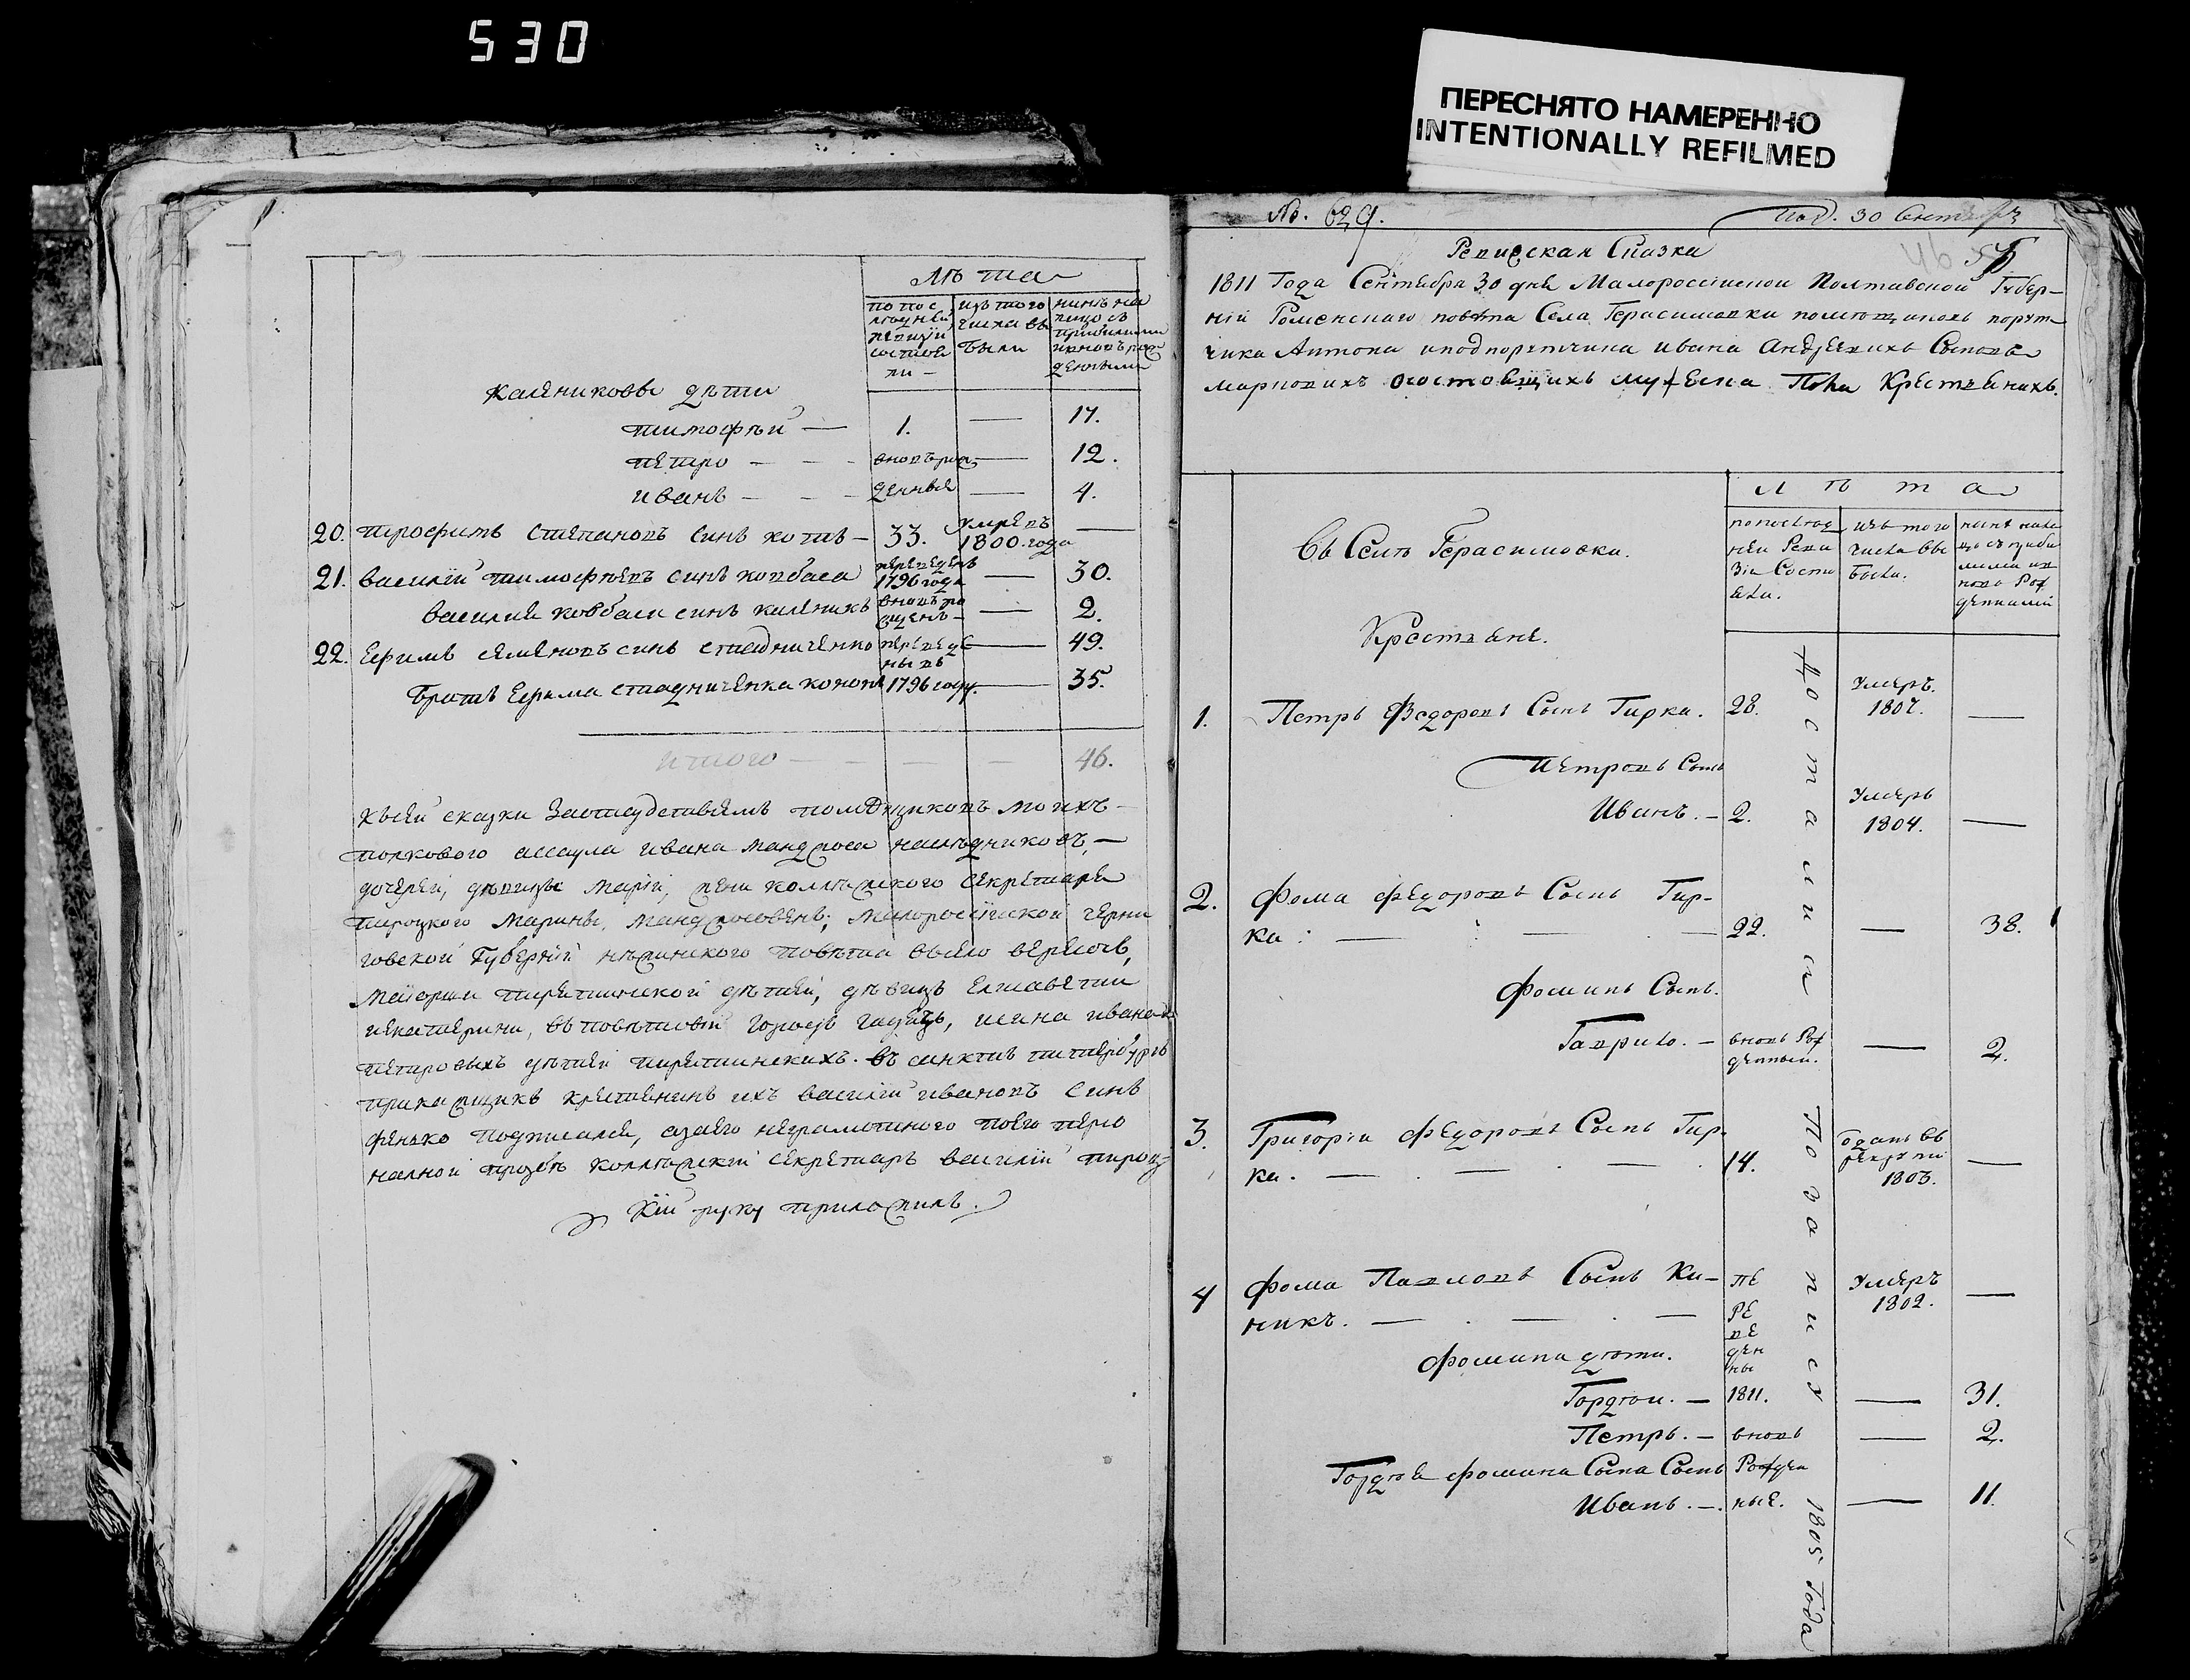 530
ПЕРЕСНЯТО НАМЕРЕННО
INTENTIONALLY REFILMED
Лѣта
по пос
лѣдней
ревизіи
состоя
ли —
изъ того
числа вы
были
нинѣ на
лицо съ
прибилими
и вновь рож
денными
Каленикови дѣти
тимофѣй — 1. — 17.
петро — — — вновърож — 12.
иванъ — — — денныя — 4.
20. трофимъ степановъ синъ котъ — 33. умревъ 1800. года —
21. василій тимофѣевъ синъ ковбаса переведенъ 1796 года — 30.
василия ковбаси синъ каленикъ вновъ ро жденъ — — 2.
22. Ефимъ семеновъ синъ стадниченко переведе — 49.
ны въ
братъ Ефима стадниченка кононъ 1796 году. — 35.
итого — — — — 46.
късей сказки Заотсудствіемъ помѣщиковъ моихъ —
полкового асаула ивана мандроса наслѣдниковъ, —
дочерей, дѣвици маріи, жени колѣжского секретаря
пироцкого Марины, мандросовенъ; малоросійской черни
говской Губерній нѣжинского повѣта всело вересочъ,
маіорши пирятинской дѣтей, дѣвицъ Елисаветии
иекатерини, въ повѣтовѣй городъ гадячъ, исина ивана
петровыхъ дѣтей пирятинскихъ. въ санктъ питербургъ
прикащикъ крестянинъ ихъ василій ивановъ синъ
фенько подписался, азаего неграмотного поего персо
налной прозбѣ колѣжскій секретаръ василій пироц-
кій руку приложилъ.
№. 629.
Под. 30 Сентября
46
Ревизская Сказка
1811 Года Сентября 30 дня Малоросійской Полтавской Губер-
ній Роменскаго повѣта Села Герасимовки помѣщиковъ порут-
чика Антона иподпорутчика Ивана Андреевихъ Сыновъ
марковихъ осостоящихъ мужеска Пола Крестьянахъ.
Лѣта
по послѣд
ней Реви
зіи Состо
яли.
изъ того
числа вы
были.
нинѣ нали
цо съ приби
лими ив
новь Рож
денными
Въ Селѣ Герасимовки.
Крестьяне.
1. Петръ Федоровъ Сынъ Гирка. 28. Умеръ. 1807. —
Петровъ Сынъ
Иванъ. — 2. Умеръ 1804. —
2. Фома Федоровъ Сынъ Гир-
ка: — — — 22. — 38.
Фоминъ Сынъ.
Гаврило. — вновь Рож денный. — 2.
3. Григорій Федоровъ Сынъ Гир-
ка. — — — 14. Одань въ рекруты 1803. —
4 Фома Павловъ Сынъ Ки-
никъ. — — — ПЕ РЕ ВЕ ден ны Умеръ 1802. —
Фомини дѣти.
Гордѣй. — 1811. — 31.
Петръ. — вновь — 2.
Гордѣя Фомина Сына Сынъ Рожден
Иванъ. — ные. — 11.
Достались По записѣ 1805 Года